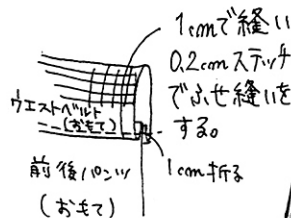 1cmで縫い
0.2cmステッチ
でふせ縫いを
する。
ウエストベルト
(おもて)
1cm折る
前後パンツ
(おもて)